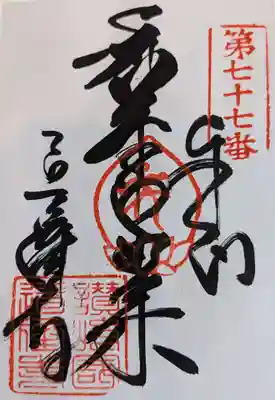 第七十七番
奉納
薬師如来
道隆寺